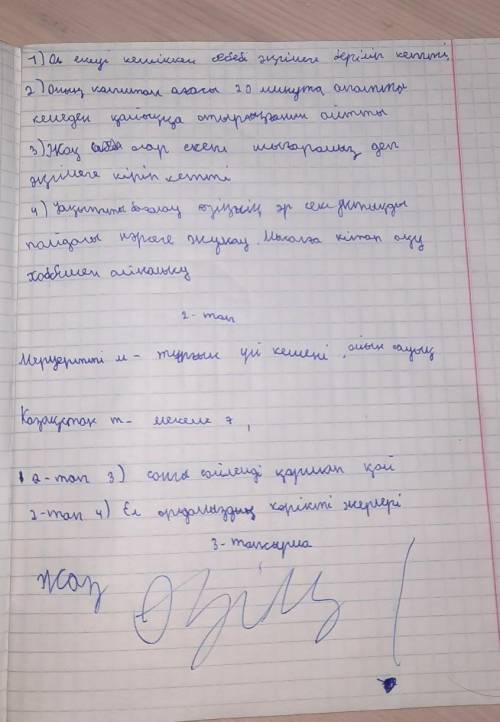 1) Ол екеуі кешіккен себебі әңгімеге беріліп кетті
2) Оның капитан ағасы 20 минутта апатты
кемеден қайыққа отырғызғанин айтты
3) Жоқ олар екеуі шығарамыз деп
әңгімеге кіріп кетті
4) Уақытты бағалау өзіңнің әр секундтыңды
пайдалы нәрсеге жұмсау. Мысалға кітап оқу
хоббимен айналысу
2 - тап
Мерцеритті м - тұрғын үй кешені, ойын сауық
Қазақстан т - мекеме 7,
2-тап 3) соңғы сөйлемді қарман қой
2-тап 4) Ел ордамыздың көрікті жерлері
3 - тапсырма
жаз өзің !